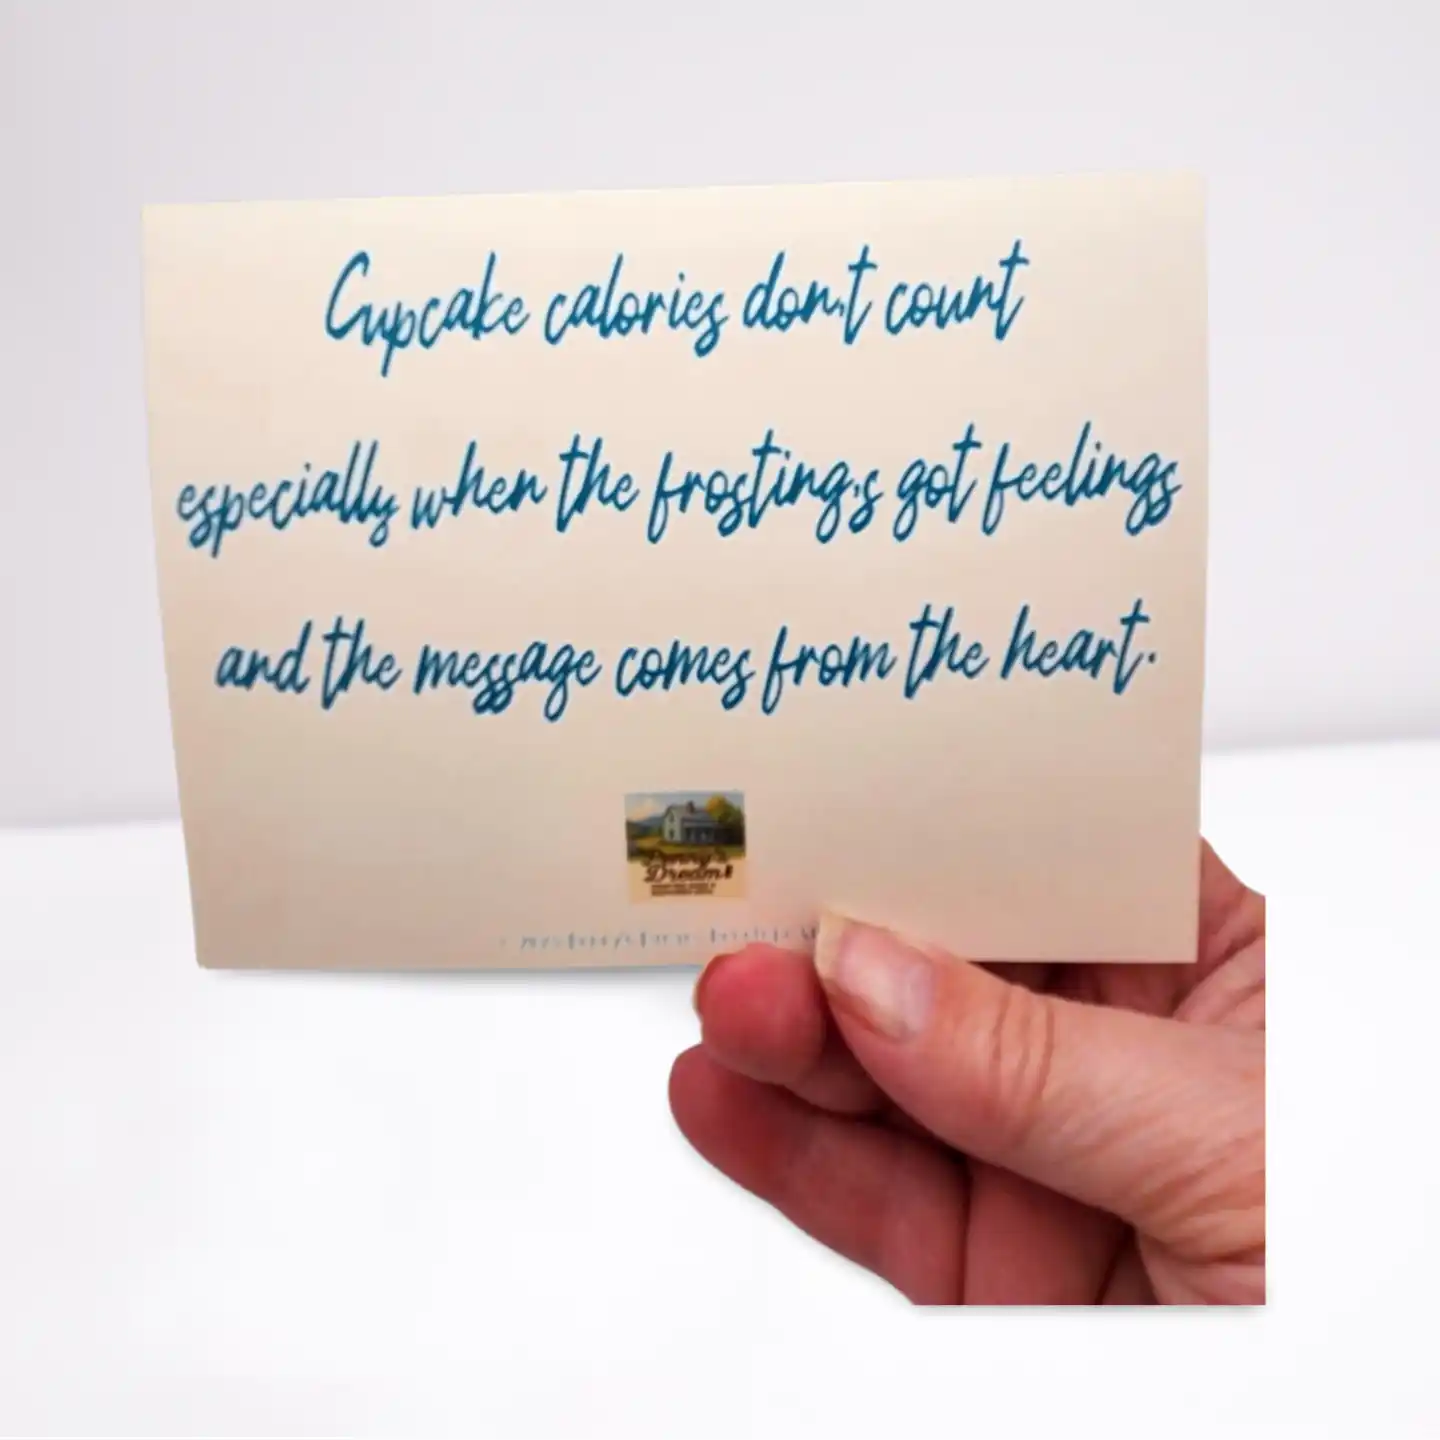 Cupcake calories don't count
especially when the frosting's got feelings
and the message comes from the heart.
Penny's
Dream